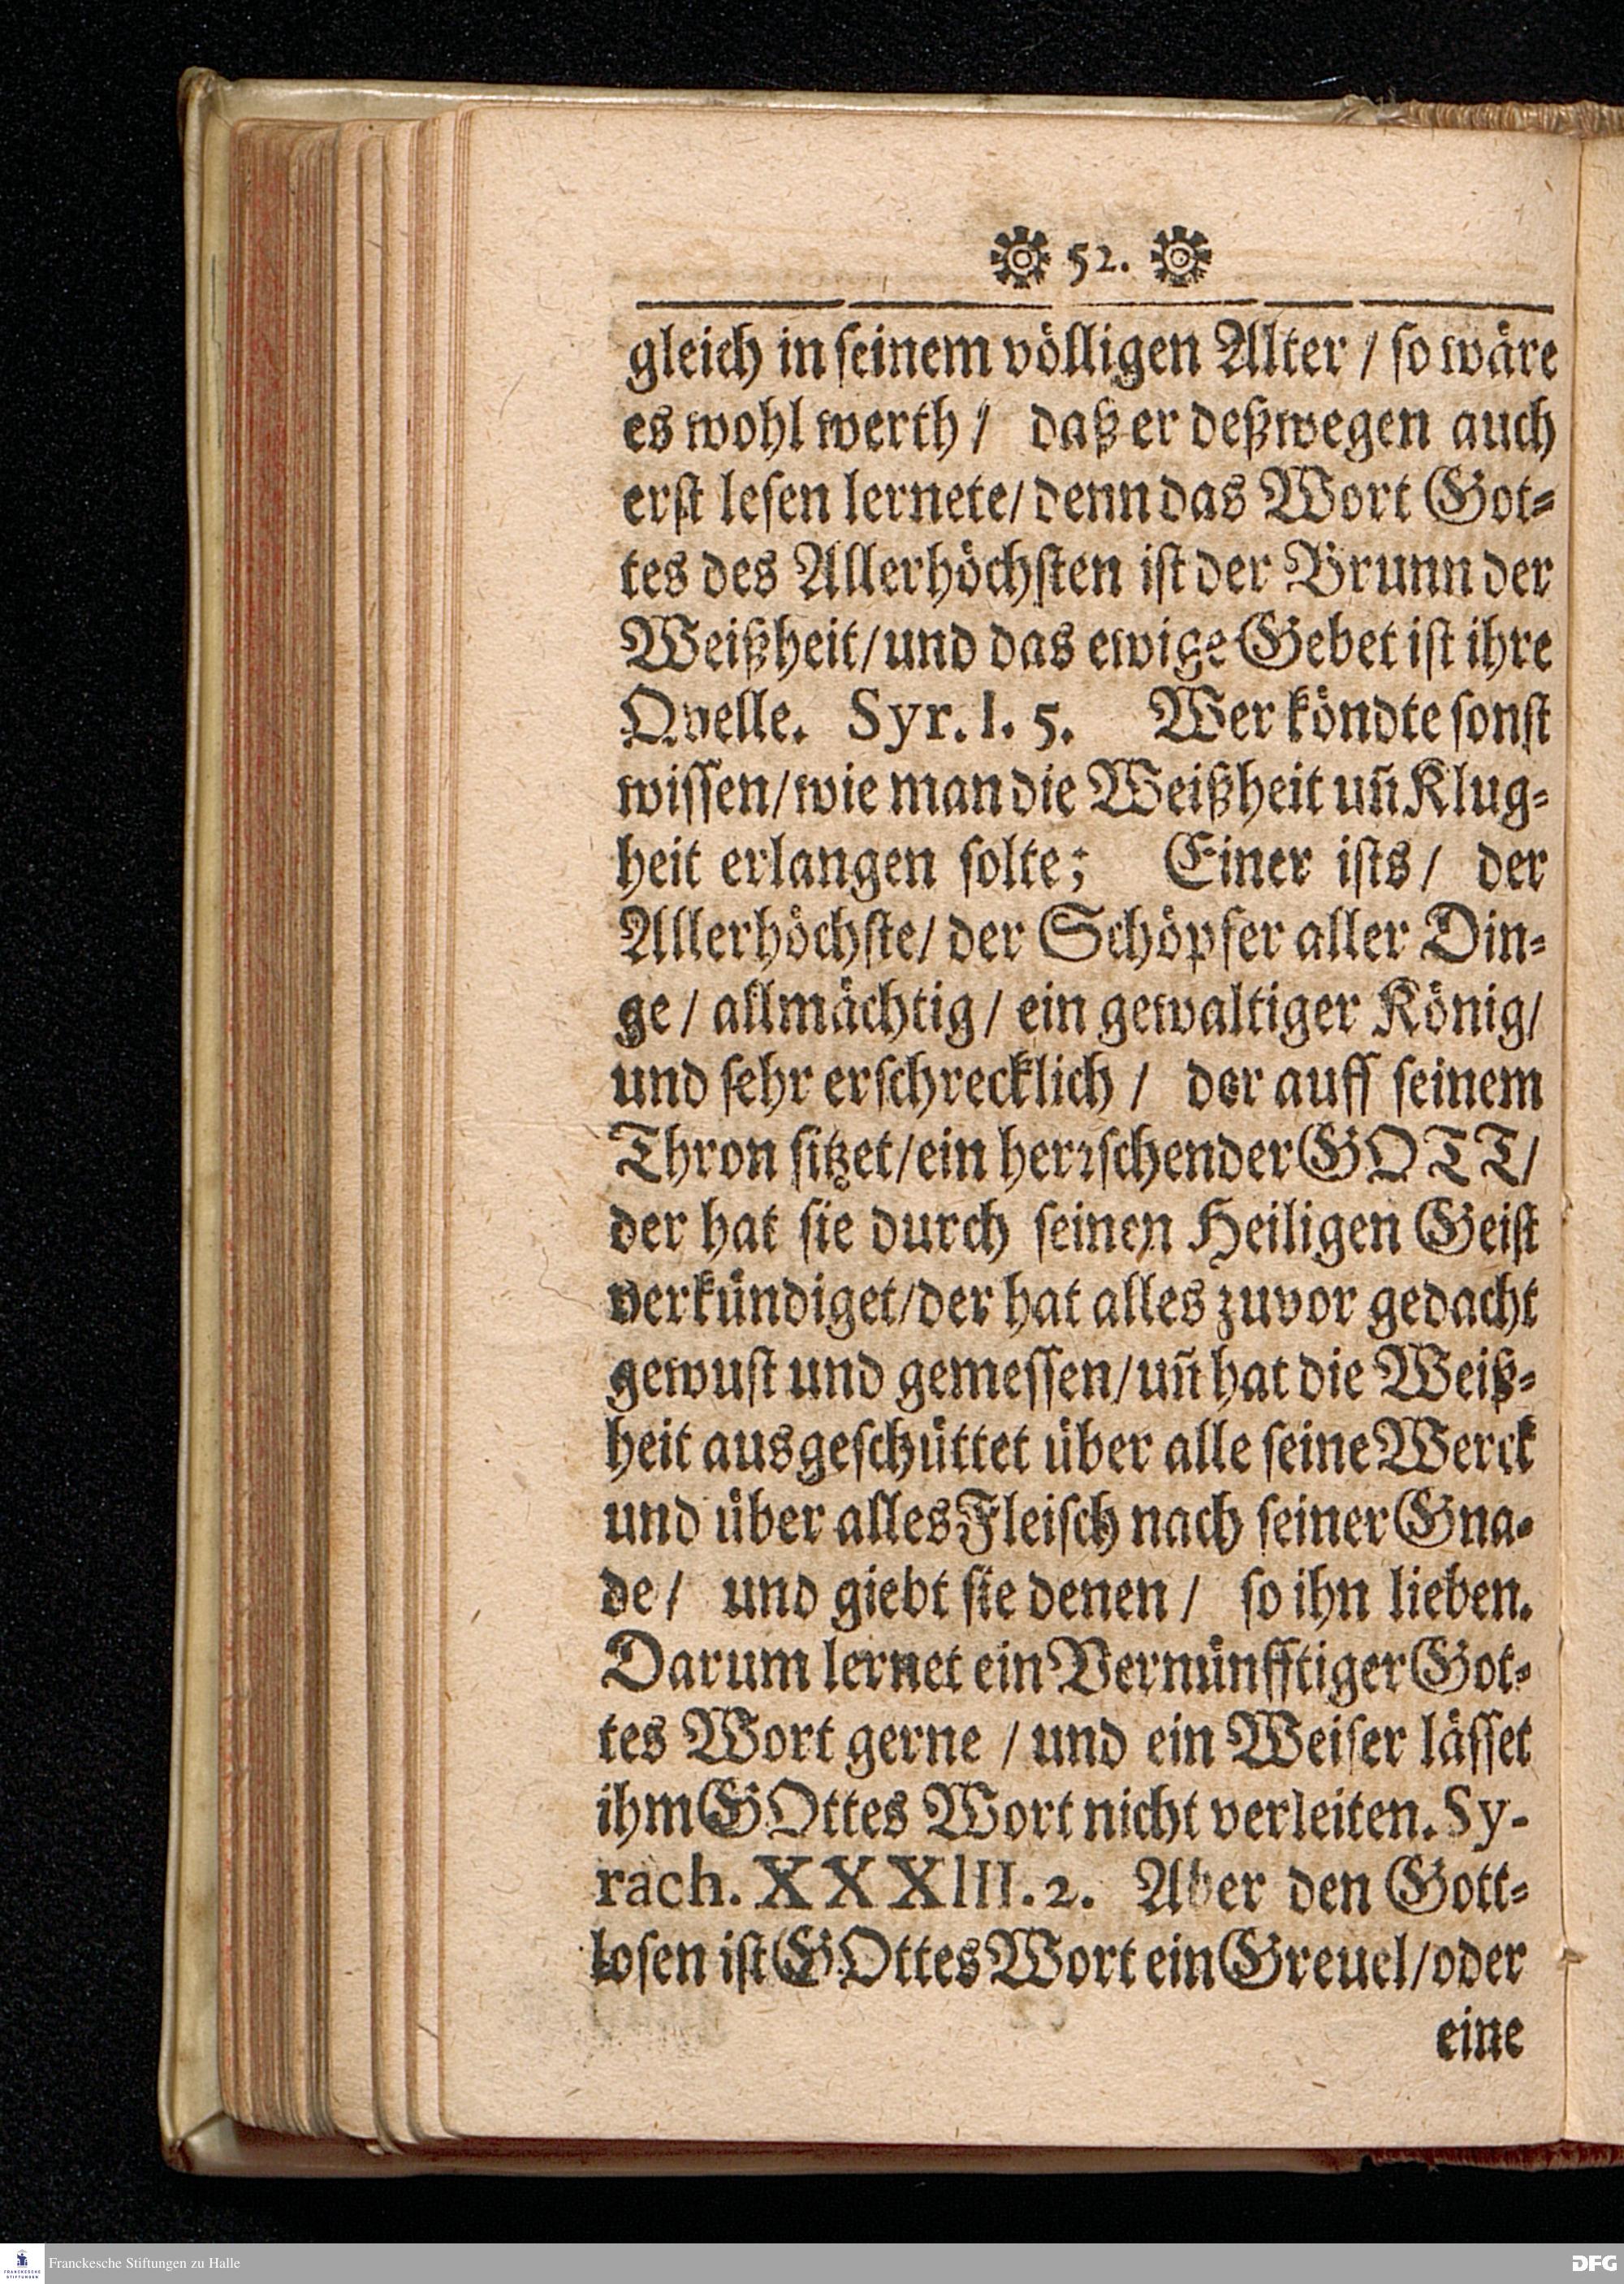 52.
gleich in seinem völligen Alter / so wäre
es wohl werth / daß er deßwegen auch
erst lesen lernete / denn das Wort Got-
tes des Allerhöchsten ist der Brunn der
Weißheit / und das ewige Gebet ist ihre
Qvelle. Syr. I. 5. Wer köndte sonst
wissen / wie man die Weißheit uñ Klug-
heit erlangen solte; Einer ists / der
Allerhöchste / der Schöpfer aller Din-
ge / allmächtig / ein gewaltiger König /
und sehr erschrecklich / der auff seinem
Thron sitzet / ein herꝛschender GOTT /
der hat sie durch seinen Heiligen Geist
verkündiget / der hat alles zuvor gedacht
gewust und gemessen / uñ hat die Weiß-
heit ausgeschüttet über alle seine Werck
und über alles Fleisch nach seiner Gna-
de / und giebt sie denen / so ihn lieben.
Darum lernet ein Vernünfftiger Got-
tes Wort gerne / und ein Weiser lässet
ihm GOttes Wort nicht verleiten. Sy-
rach. XXXIII. 2. Aber den Gott-
losen ist GOttes Wort ein Greuel / oder
eine
Franckesche Stiftungen zu Halle
DFG